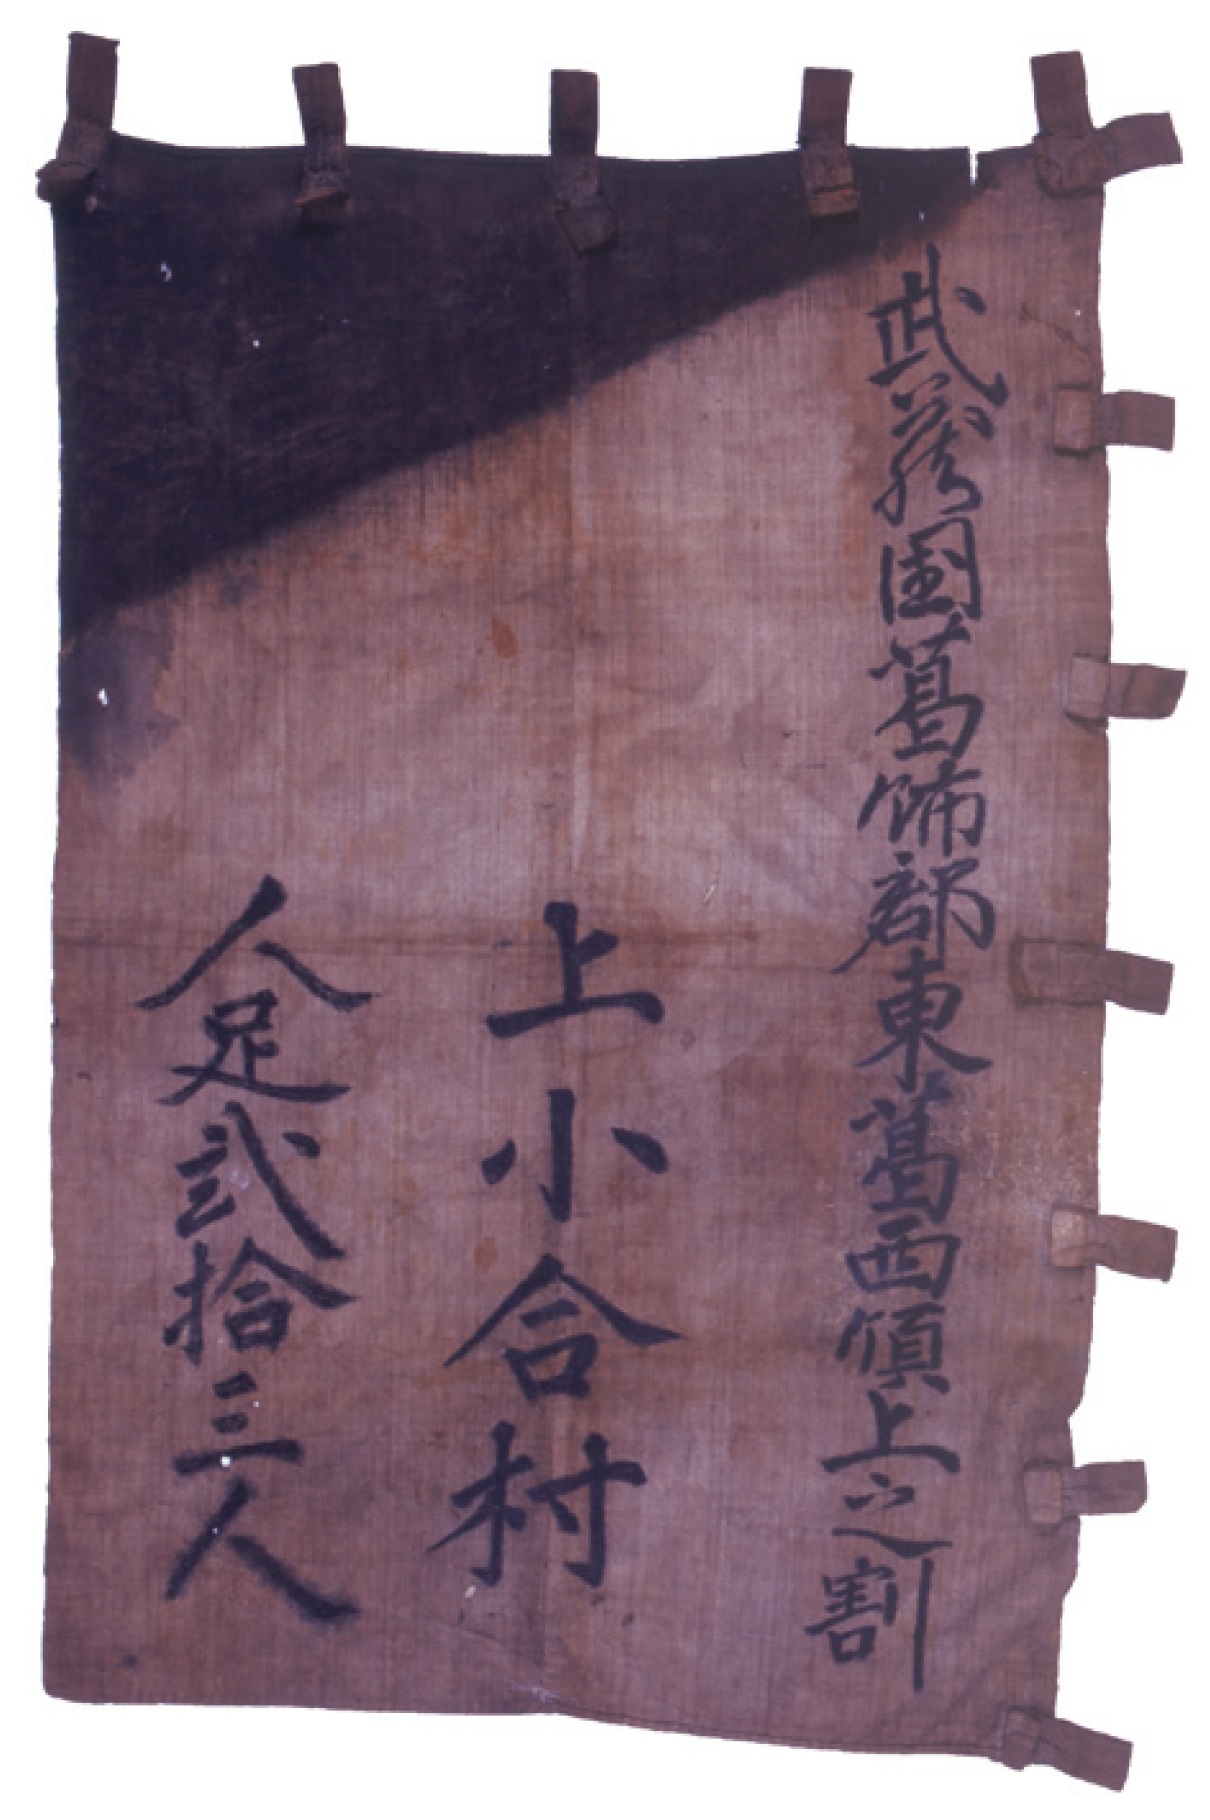 武蔵国葛飾郡東葛西領上之割
上小合村
人足弐拾三人